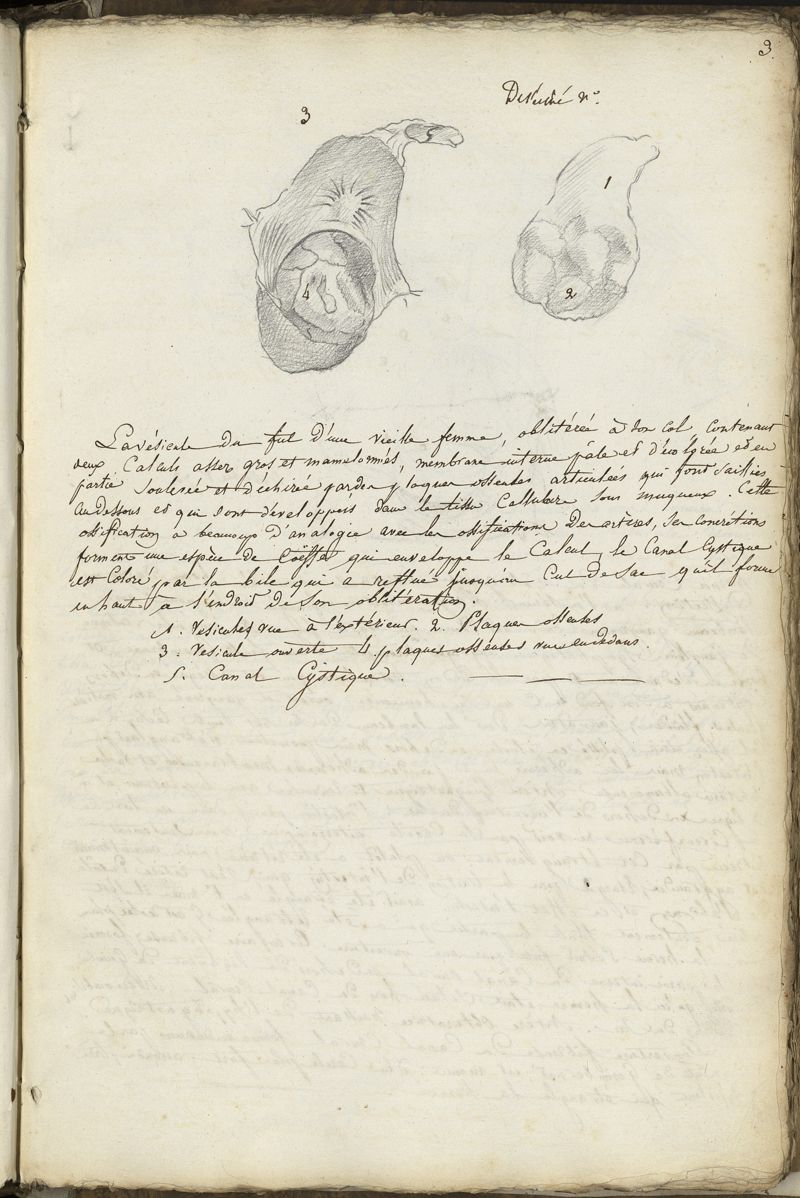 3.
Desséché n°.
3
1
4
2
La vésicule du fiel d'une vieille femme, oblitérée à son col, contenant
deux calculs assez gros et mamelonnés, membrane interne pâle et décolorée et en
partie soulevée et déchirée par des plaques osseuses articulées qui font saillies
au dessous et qui sont développées dans le tissu cellulaire sous muqueux. Cette
ossification a beaucoup d'analogie avec les ossifications des artères, ses concrétions
forment une espèce de qui enveloppe le calcul, le canal cystique
est coloré par la bile qui a reflué jusqu'au cul de sac qu'il forme
en haut à l'endroit de son oblitération.
1. Vésicule vue à l'extérieur. 2. Plaques osseuses
3. Vésicule ouverte 4. plaques osseuses vues en dedans.
5. Canal Cystique.